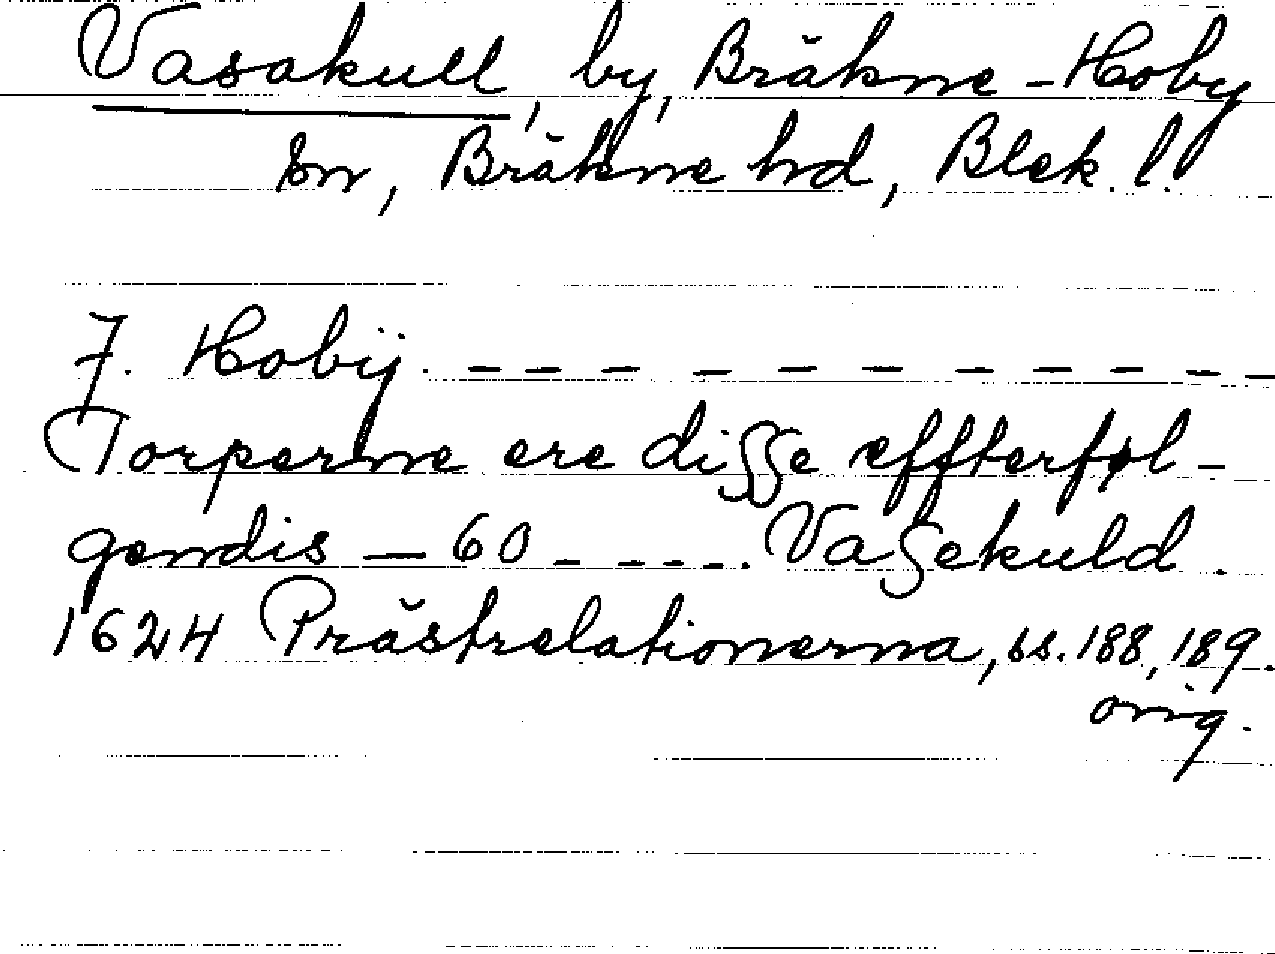 Vasakull, by, Bräkne-Hoby
sn, Bräkne hd, Blek. l.
7. Hobÿ. – – – – – – – – – –
Torperne ere diſſe effterføl-
gendis — 60 – – – –. Vaſekuld.
1624 Prästrelationerna, ss. 188, 189.
orig.